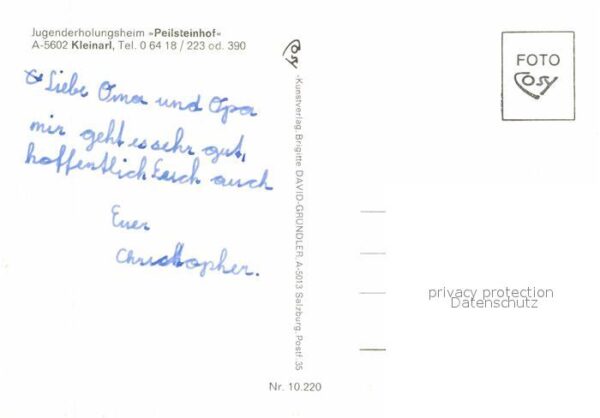 Jugenderholungsheim »Peilsteinhof«
A-5602 Kleinarl, Tel. 0 64 18 / 223 od. 390
Liebe Oma und Opa
mir geht es sehr gut,
hoffentlich Euch auch
Euer
Christopher.
Cosy
-Kunstverlag, Brigitte DAVID-GRÜNDLER, A-5013 Salzburg, Postf. 35
Nr. 10.220
FOTO
Cosy
privacy protection
Datenschutz